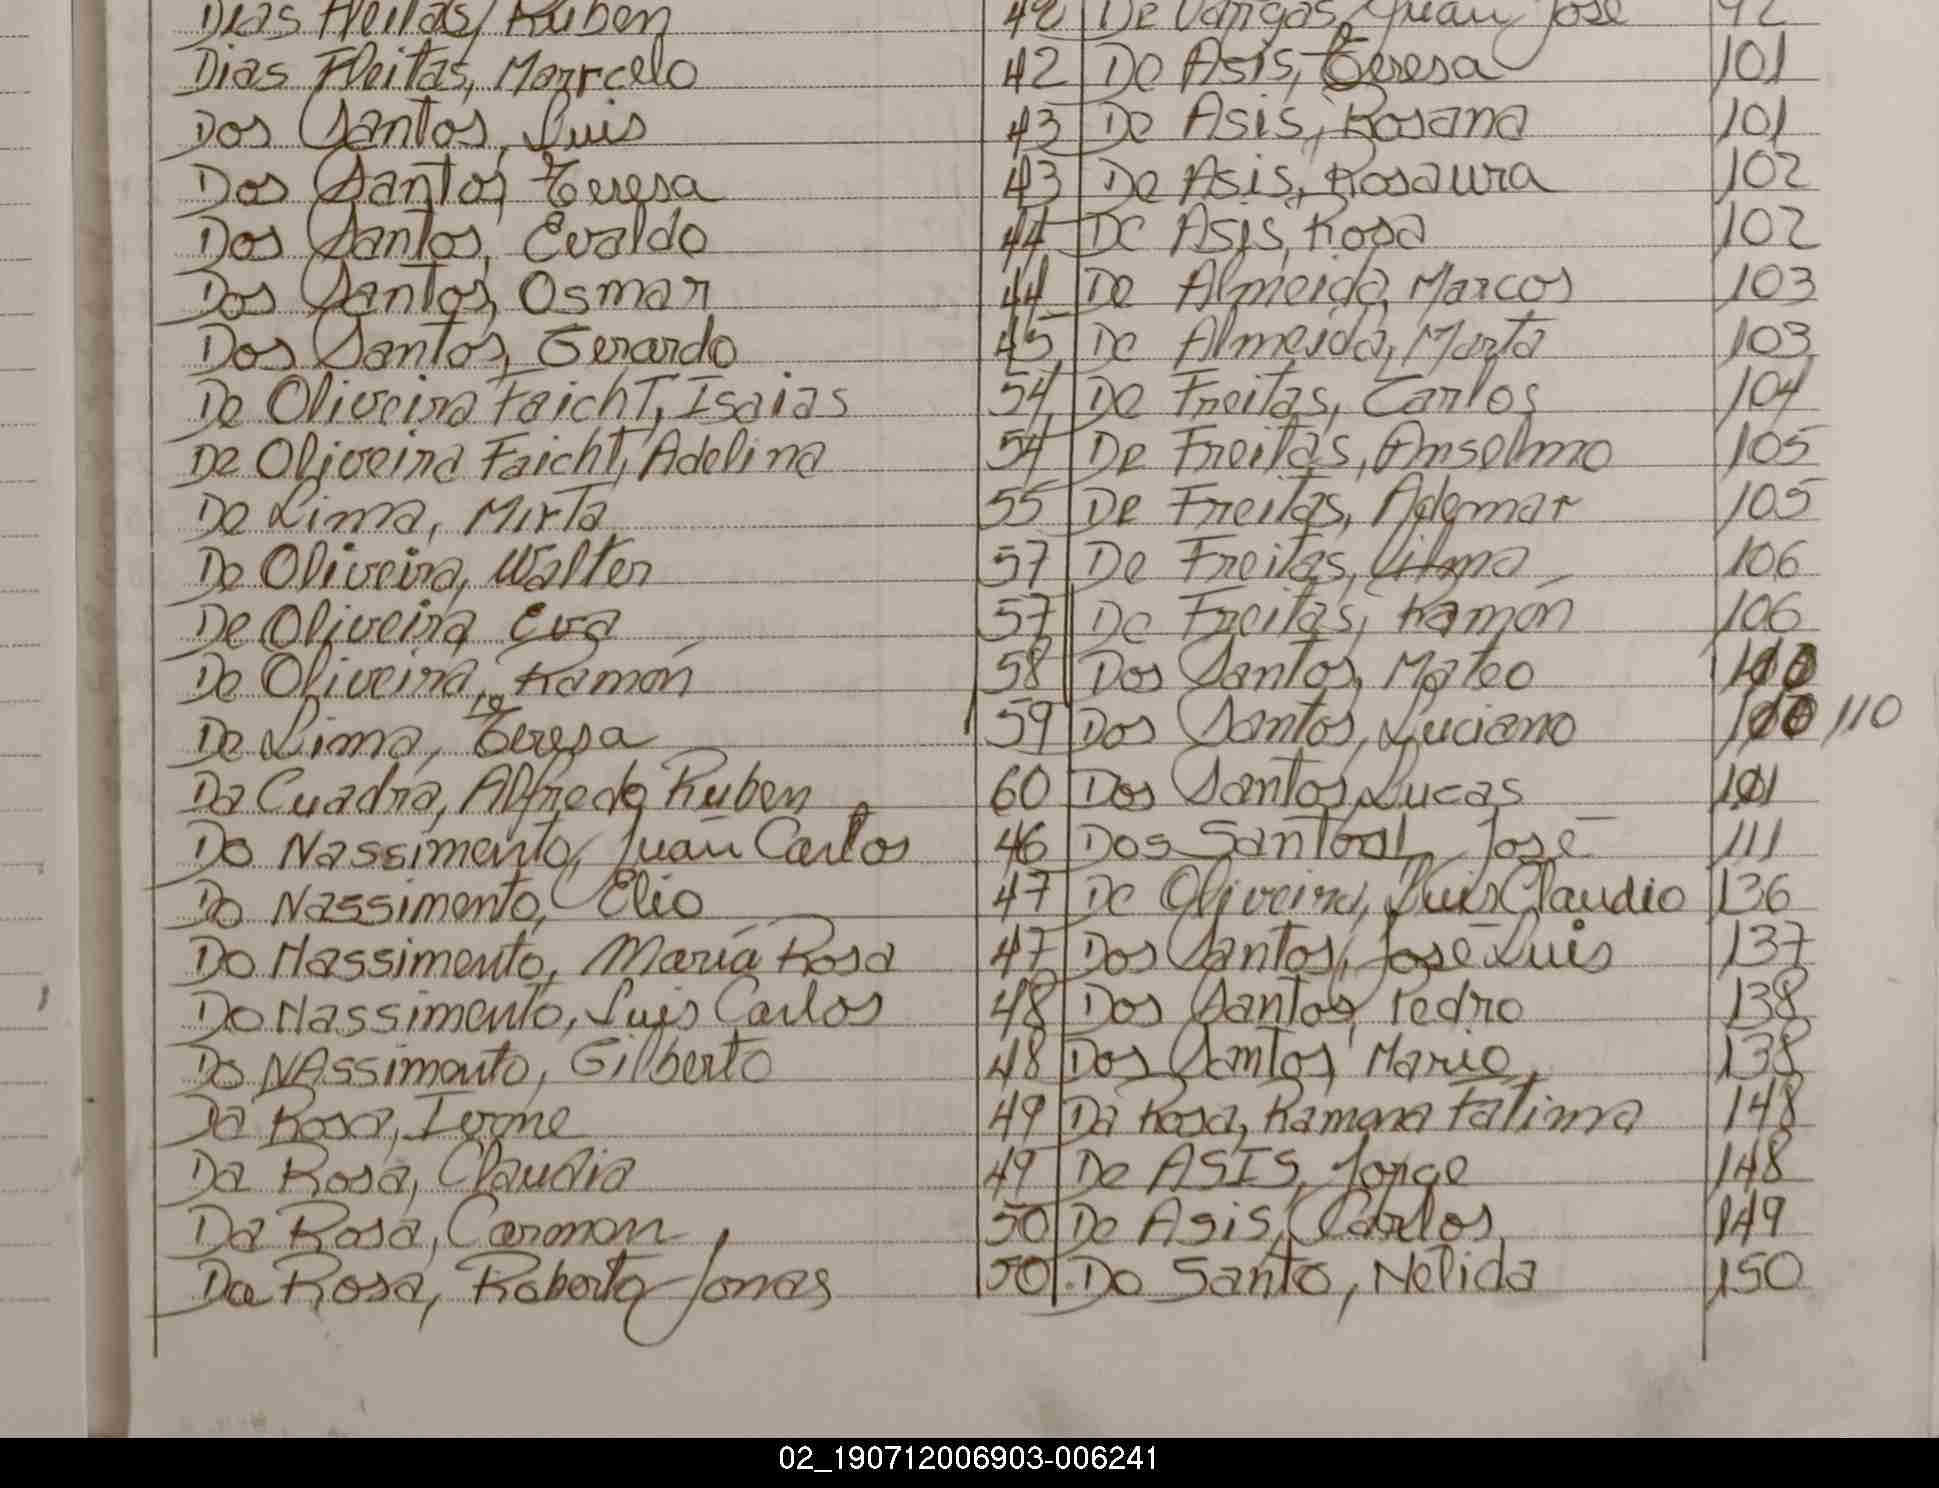 Dias Fleitas, Ruben 42
Dias Fleitas, Marrcelo 42
Dos Santos, Luis 43
Dos Santos, Teresa 43
Dos Santos, Evaldo 44
Dos Santos, Osmar 44
Dos Santos, Gerardo 45
De Oliveira Faicht, Isaias 54
De Oliveira Faicht, Adelina 54
De Lima, Mirta 55
De Oliveira, Walter 57
De Oliveira, Eva 57
De Oliveira, Ramón 58
De Lima, Teresa 59
Da Cuadra, Alfredo Ruben 60
Do Nassimento, Juan Carlos 46
Do Nassimento, Elio 47
Do Nassimento, María Rosa 47
Do Nassimento, Luis Carlos 48
Do NAssimento, Gilberto 48
Da Rosa, Ivone 49
Da Rosa, Claudia 49
Da Rosa, Carmen 50
Da Rosa, Roberto Jonas 50
De Vargas, Juan José 92
De Asis, Teresa 101
De Asis, Rosana 101
De Asis, Rosaura 102
De Asis, Rosa 102
De Almeida, Marcos 103
De Almeida, Marta 103
De Freitas, Carlos 104
De Freitas, Anselmo 105
De Freitas, Ademar 105
De Freitas, Vilma 106
De Freitas, Ramón 106
Dos Santos, Mateo
Dos Santos, Luciano 110
Dos Santos, Lucas
Dos Santos, José 111
De Oliveira, Luis Claudio 136
Dos Santos, José Luis 137
Dos Santos, Pedro 138
Dos Santos, Mario 138
Da Rosa, Ramona Fatima 148
De ASIS, Jorge 148
De Asis, Carlos 149
Do Santo, Nélida 150
02_190712006903-006241